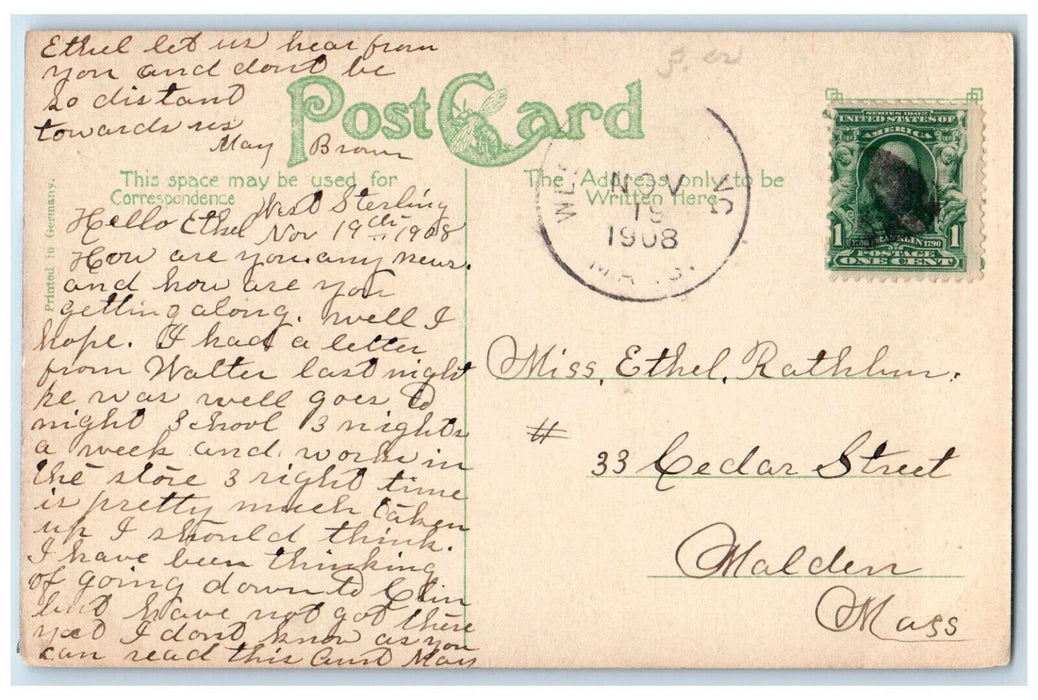 Ethel let us hear from
you and dont be
so distant
towards us
May Brown
Post Card
This space may be used for
Correspondence
The Address only to be
Written Here
Printed in Germany.
West Sterling
Hello Ethel Nov 19th 1908
How are you. any news.
and how are you
getting along. well I
hope. I had a letter
from Walter last night
he was well goes to
night School 3 nights
a week and works in
the store 3 right time
is pretty much taken
up I should think.
I have been thinking
of going down to Clin
but have not got there
yet I dont know as you
can read this Aunt May
NOV
19
1908
MASS.
SERIES 1902
UNITED STATES OF
AMERICA
1706 FRANKLIN 1790
POSTAGE
1 ONE CENT 1
Miss. Ethel. Rathbun.
# 33 Cedar Street
Malden
Mass